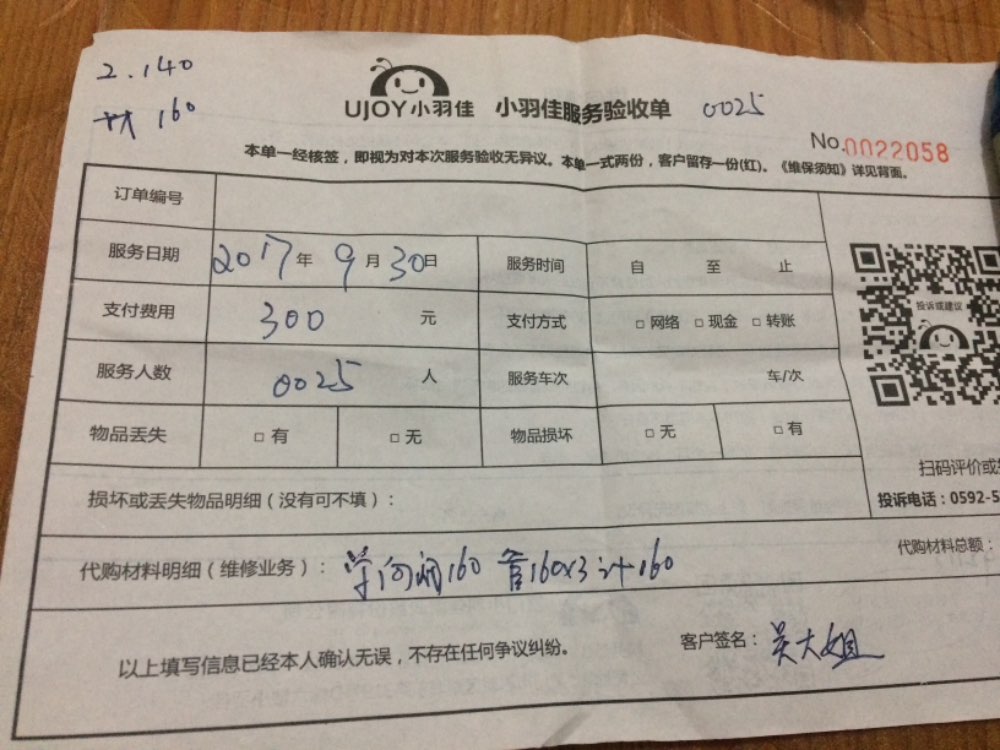 2.140
160
UJOY小羽佳 小羽佳服务验收单 0025
No.0022058
本单一经核签，即视为对本次服务验收无异议。本单一式两份，客户留存一份(红)。《维保须知》详见背面。
订单编号
服务日期 2017年 9月 30日 服务时间 自 至 止
投诉或建议
支付费用 300 元 支付方式 □ 网络 □ 现金 □ 转账
服务人数 0025 人 服务车次 车/次
物品丢失 □ 有 □ 无 物品损坏 □ 无 □ 有
扫码评价或
损坏或丢失物品明细（没有可不填）：
投诉电话：0592-5
代购材料明细（维修业务）： 160 管160x3计160
代购材料总额：
以上填写信息已经本人确认无误，不存在任何争议纠纷。 客户签名：吴大姐